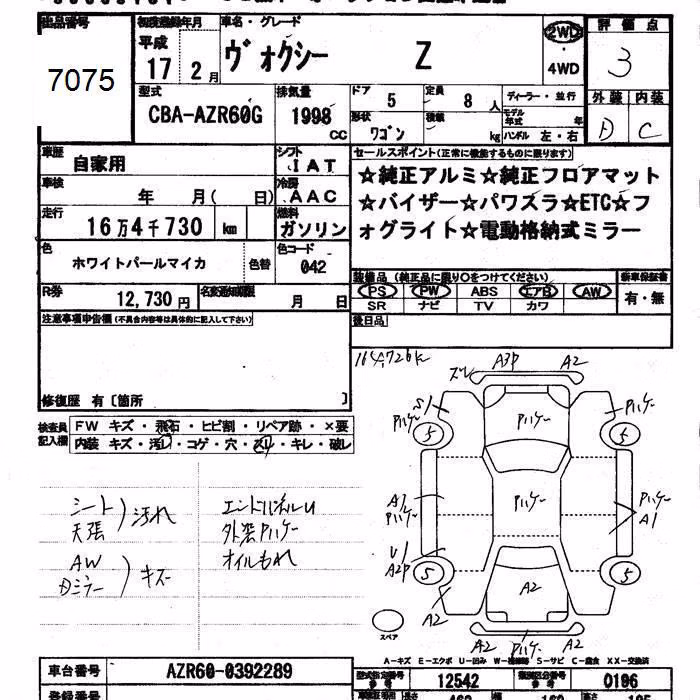 出品番号 初度登録年月 車名・グレード 評価点
平成 2WD
7075 17 2月 ヴォクシー Z ・ 3
4WD
型式 排気量 ドア 5 定員 8 人 ディーラー・並行 外装 内装
CBA-AZR60G 1998 cc 形状 ワゴン 積載 kg モデル年式 年 D C
ハンドル 左・右
車歴 自家用 シフト IAT セールスポイント(正常に機能するものに限ります)
車検 年 月( 日) 冷房 AAC ☆純正アルミ☆純正フロアマット
走行 16万4千730 km 燃料 ガソリン ☆バイザー☆パワスラ☆ETC☆フ
色 ホワイトパールマイカ 色替 色コード 042 ォグライト☆電動格納式ミラー
装備品 (純正品に限り○をつけてください) 新車保証書
R券 12,730円 名変通知期限 月 日 PS PW ABS エアB AW 有・無
SR ナビ TV カワ
注意事項申告欄(不具合内容等は具体的に記入して下さい) 後日品
修復歴 有〔箇所 〕
検査員記入欄 FW キズ・飛石・ヒビ割・リペア跡・×要
内装 キズ・汚レ・コゲ・穴・スリ・キレ・破レ
ズレ A3P A2
S1 Pハゲー Pハゲー Pハゲー
5 5
シート 天張 )汚れ
エンドパネルU
外装Pハゲー
AW Dミラー )キズ
オイルもれ
A1 Pハゲー Pハゲー Pハゲー A1
U1 A2P
5 5
A2 A2 A2
A2 Pハゲー A2
スペア
A-キズ E-エクボ U-凹み W-補修跡 S-サビ C-腐食 XX-交換済
車台番号 AZR60-0392289 型式指定番号 12542 類別区分番号 0196
登録番号